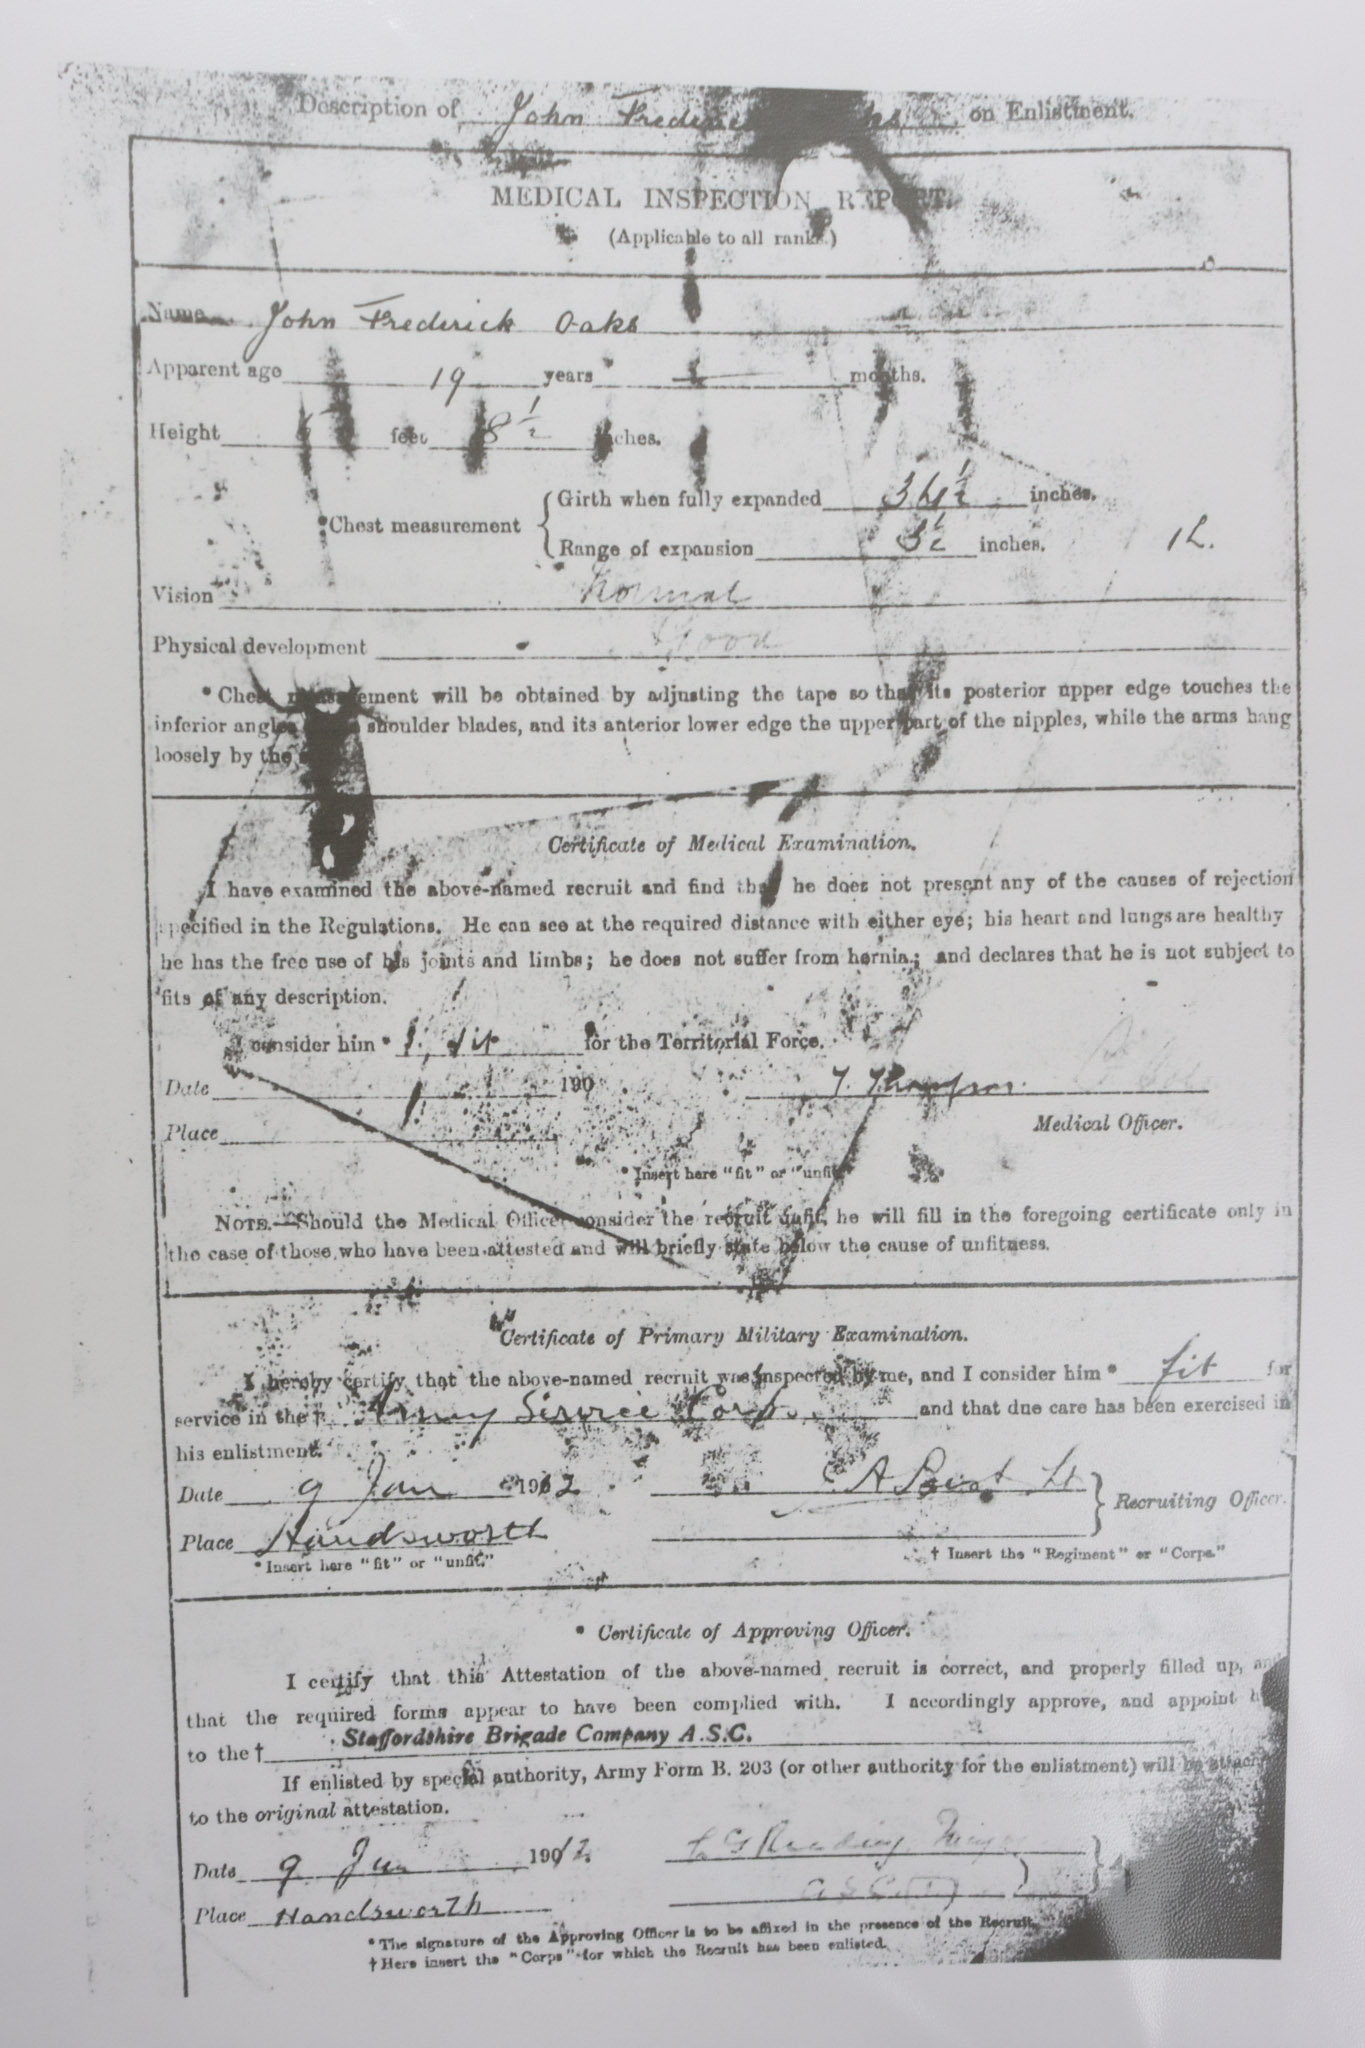 Description of John Frederick Oaks on Enlistment.
MEDICAL INSPECTION REPORT.
(Applicable to all ranks.)
Name John Frederick Oaks
Apparent age 19 years — months.
Height feet 8½ inches.
*Chest measurement
Girth when fully expanded 34½ inches.
Range of expansion 3½ inches.
Vision Normal
Physical development Good
*Chest measurement will be obtained by adjusting the tape so that its posterior upper edge touches the
inferior angles shoulder blades, and its anterior lower edge the upper part of the nipples, while the arms hang
loosely by the
Certificate of Medical Examination.
I have examined the above-named recruit and find that he does not present any of the causes of rejection
specified in the Regulations. He can see at the required distance with either eye; his heart and lungs are healthy
he has the free use of his joints and limbs; he does not suffer from hernia; and declares that he is not subject to
fits of any description.
I consider him * fit for the Territorial Force.
Date 190
Thompson
Place
Medical Officer.
*Insert here "fit" or "unfit"
NOTE.—Should the Medical Officer consider the recruit unfit, he will fill in the foregoing certificate only in
the case of those who have been attested and will briefly state below the cause of unfitness.
Certificate of Primary Military Examination.
I hereby certify that the above-named recruit was inspected by me, and I consider him * fit for
service in the † Army Service Corps. and that due care has been exercised in
his enlistment.
Date 9 Jan 1912
Lt
Recruiting Officer.
Place Handsworth
*Insert here "fit" or "unfit."
† Insert the "Regiment" or "Corps."
* Certificate of Approving Officer.
I certify that this Attestation of the above-named recruit is correct, and properly filled up, and
that the required forms appear to have been complied with. I accordingly approve, and appoint
to the † Staffordshire Brigade Company A.S.C.
If enlisted by special authority, Army Form B. 203 (or other authority for the enlistment) will be
to the original attestation.
Date 9 Jan 1912.
ASC (T)
Place Handsworth
*The signature of the Approving Officer is to be affixed in the presence of the Recruit.
†Here insert the "Corps" for which the Recruit has been enlisted.